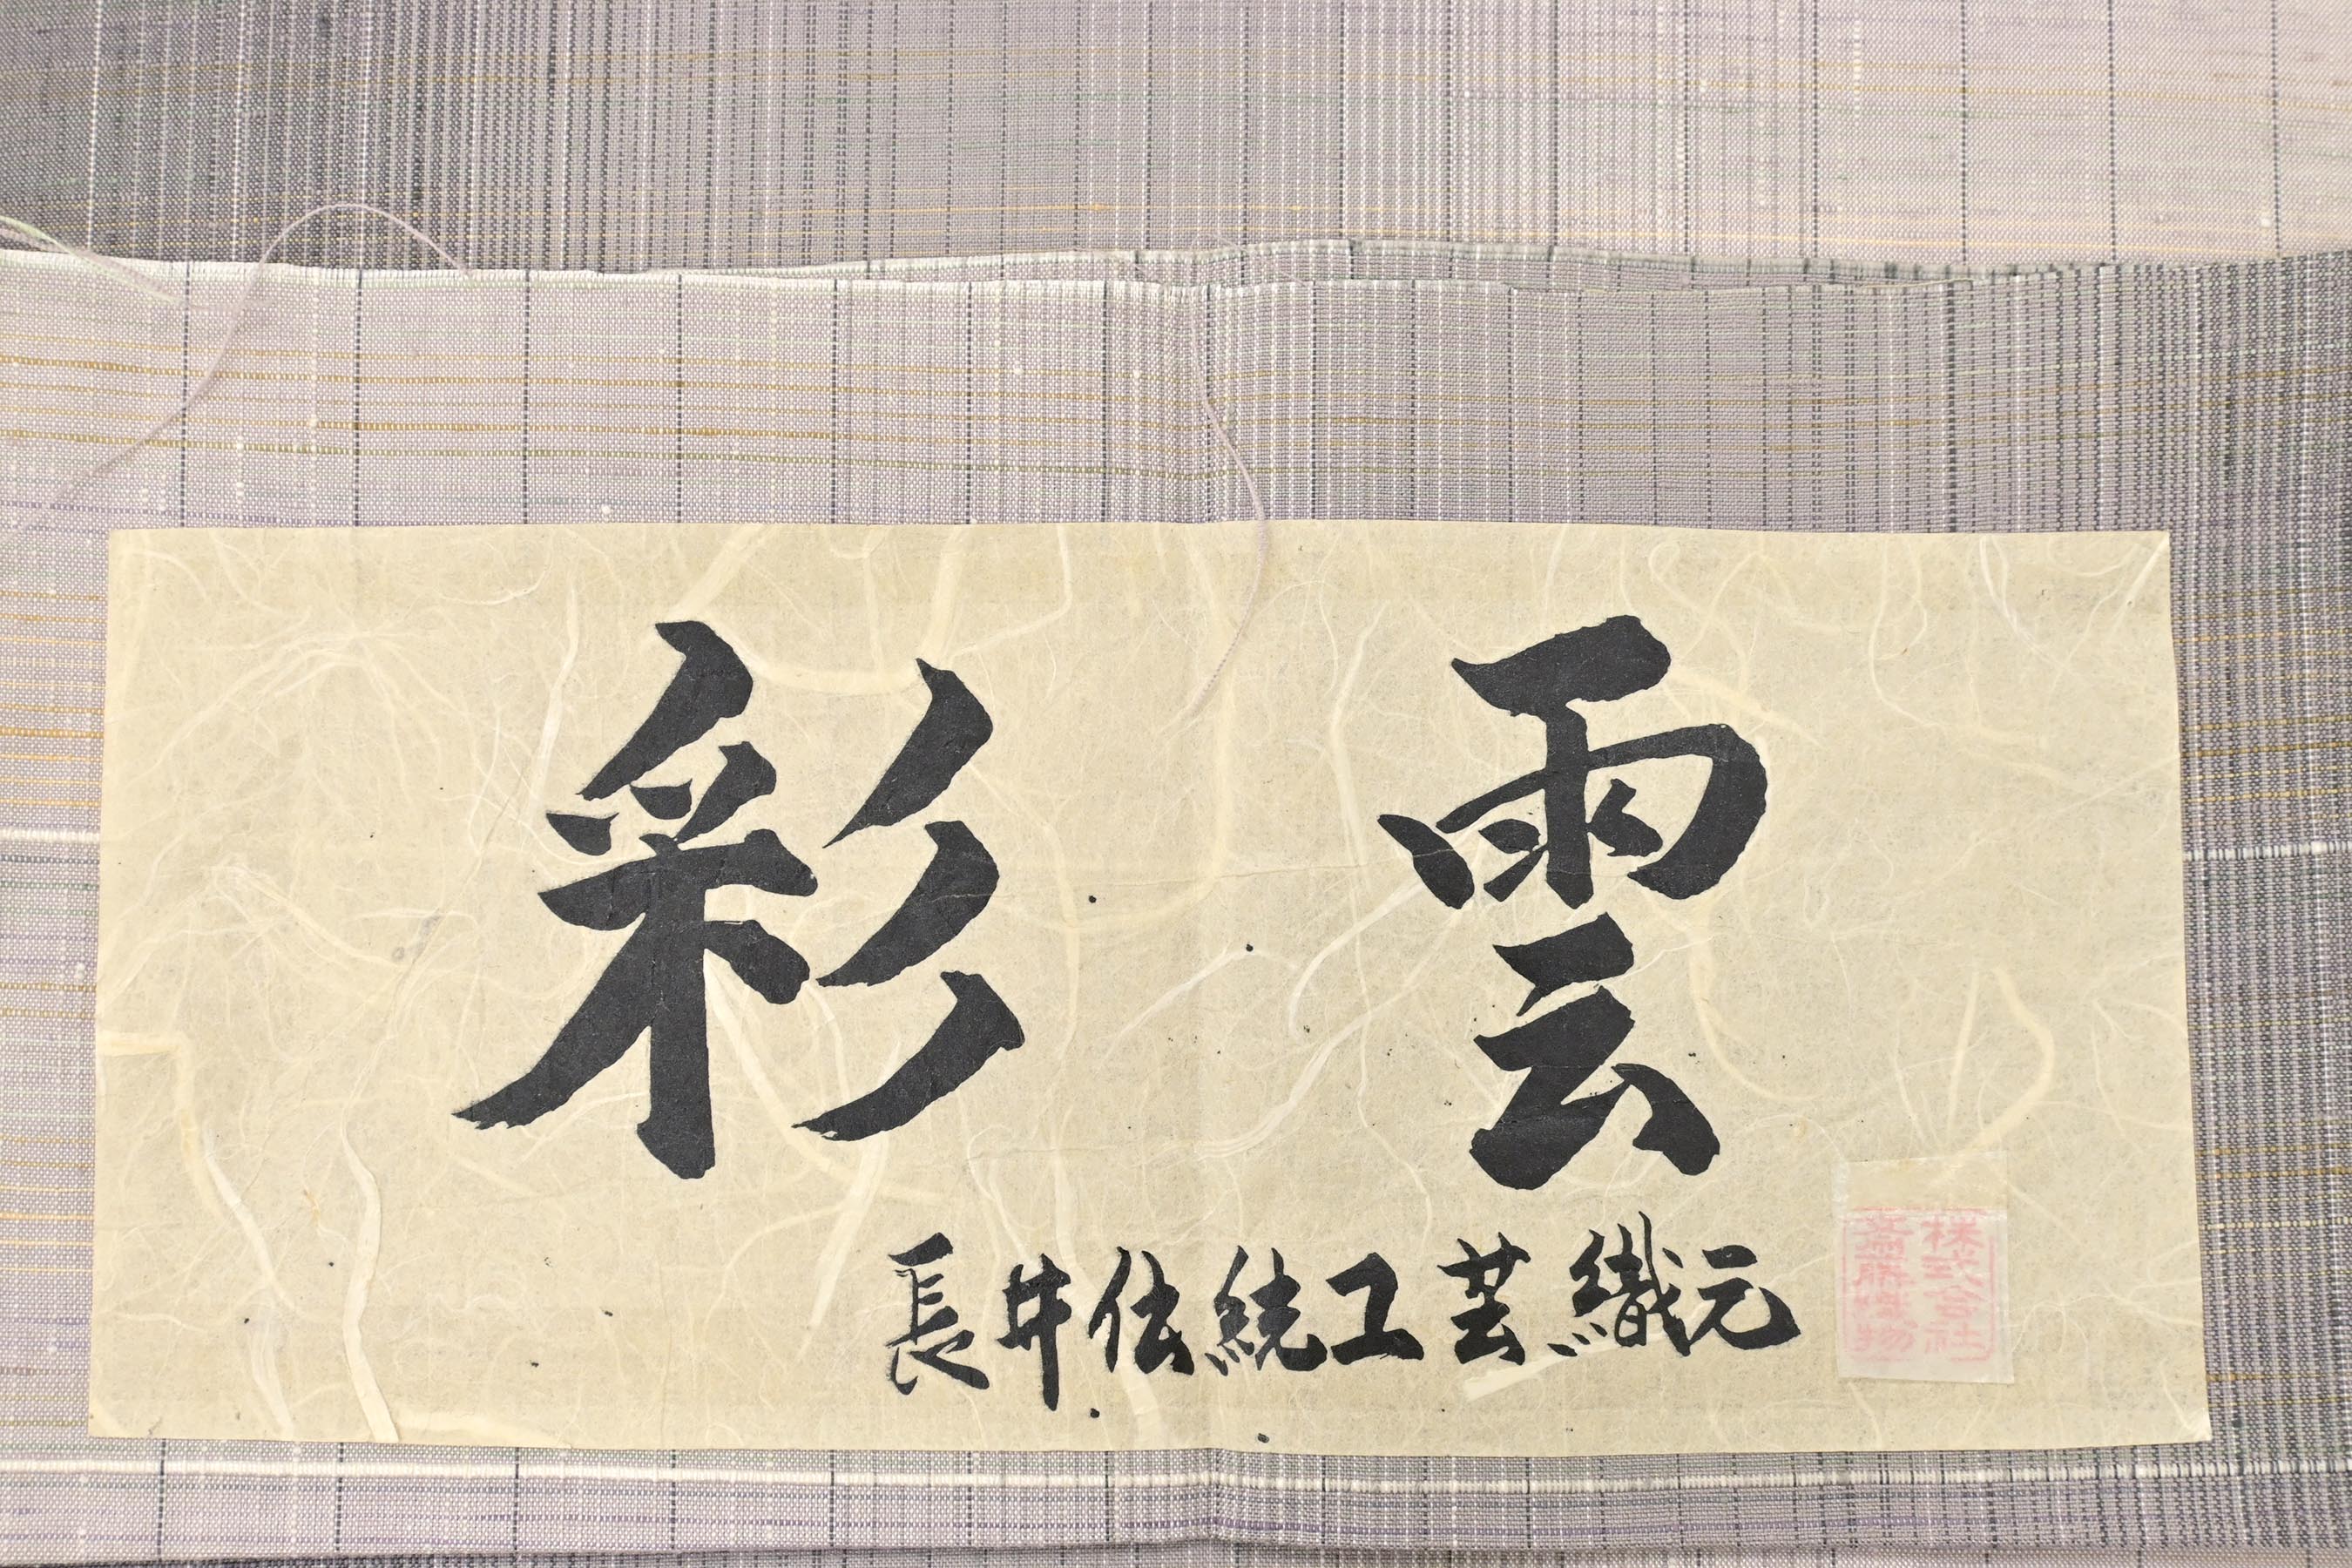 彩雲
長井伝統工芸織元
株式会社
斎藤織物